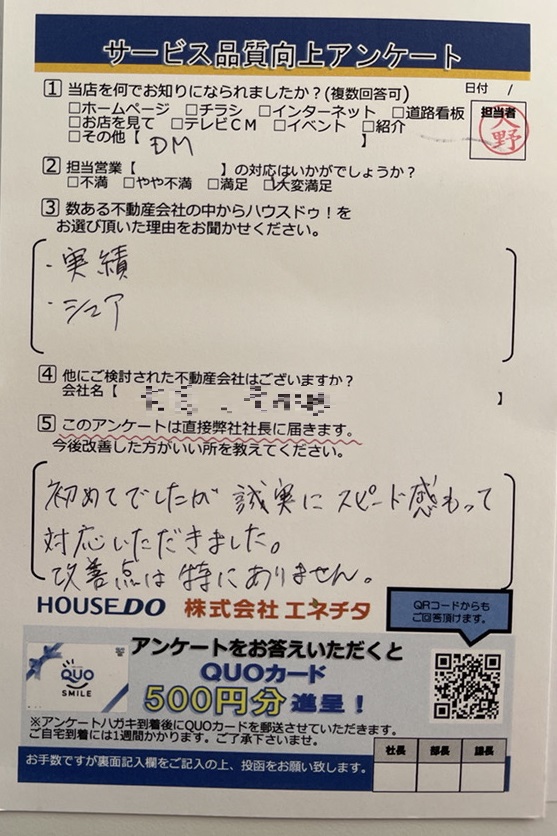 サービス品質向上アンケート
1 当店を何でお知りになられましたか？(複数回答可)
日付 /
□ホームページ □チラシ □インターネット □道路看板
□お店を見て □テレビCM □イベント □紹介
□その他【 DM 】
担当者
大野
2 担当営業【 】の対応はいかがでしょうか？
□不満 □やや不満 □満足 ☑大変満足
3 数ある不動産会社の中からハウスドゥ！を
お選び頂いた理由をお聞かせください。
・実績
・シェア
4 他にご検討された不動産会社はございますか？
会社名【 】
5 このアンケートは直接弊社社長に届きます。
今後改善した方がいい所を教えてください。
初めてでしたが 誠実に スピード感もって
対応いただきました。
改善点は特にありません。
HOUSEDO 株式会社 エネチタ
QRコードからも
ご回答頂けます。
アンケートをお答えいただくと
QUOカード
500円分 進呈！
QUO
SMILE
※アンケートハガキ到着後にQUOカードを郵送させていただきます。
ご自宅到着には1週間かかります。ご了承下さいませ。
社長 部長 課長
お手数ですが裏面記入欄をご記入の上、投函をお願い致します。